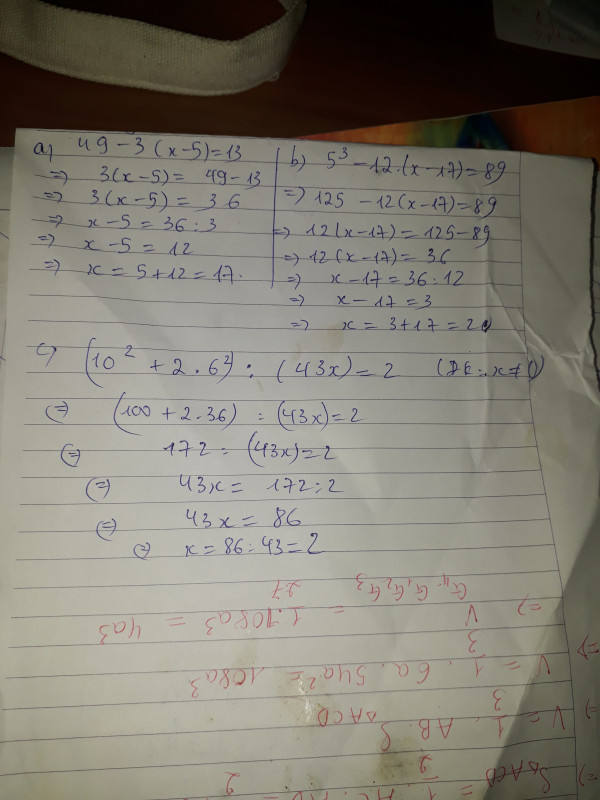 a) 49 - 3 (x-5) = 13
=> 3(x-5) = 49-13
=> 3(x-5) = 36
=> x-5 = 36:3
=> x-5 = 12
=> x = 5+12 = 17.
b) 5³ - 12.(x-17) = 89
=> 125 - 12(x-17) = 89
=> 12(x-17) = 125-89
=> 12(x-17) = 36
=> x-17 = 36:12
=> x-17 = 3
=> x = 3+17 = 20
c) (10² + 2.6²) : (43x) = 2 (ĐK: x≠0)
(=) (100 + 2.36) : (43x) = 2
(=) 172 : (43x) = 2
(=) 43x = 172:2
(=) 43x = 86
(=) x = 86:43 = 2
=> V G₄.G₁G₂G₃ = 1/27 . 108a³ = 4a³
V = 1/3 . 6a . 54a² = 108a³
=> V = 1/3 . AB . S ΔACD
=> S ΔACD = 1/2